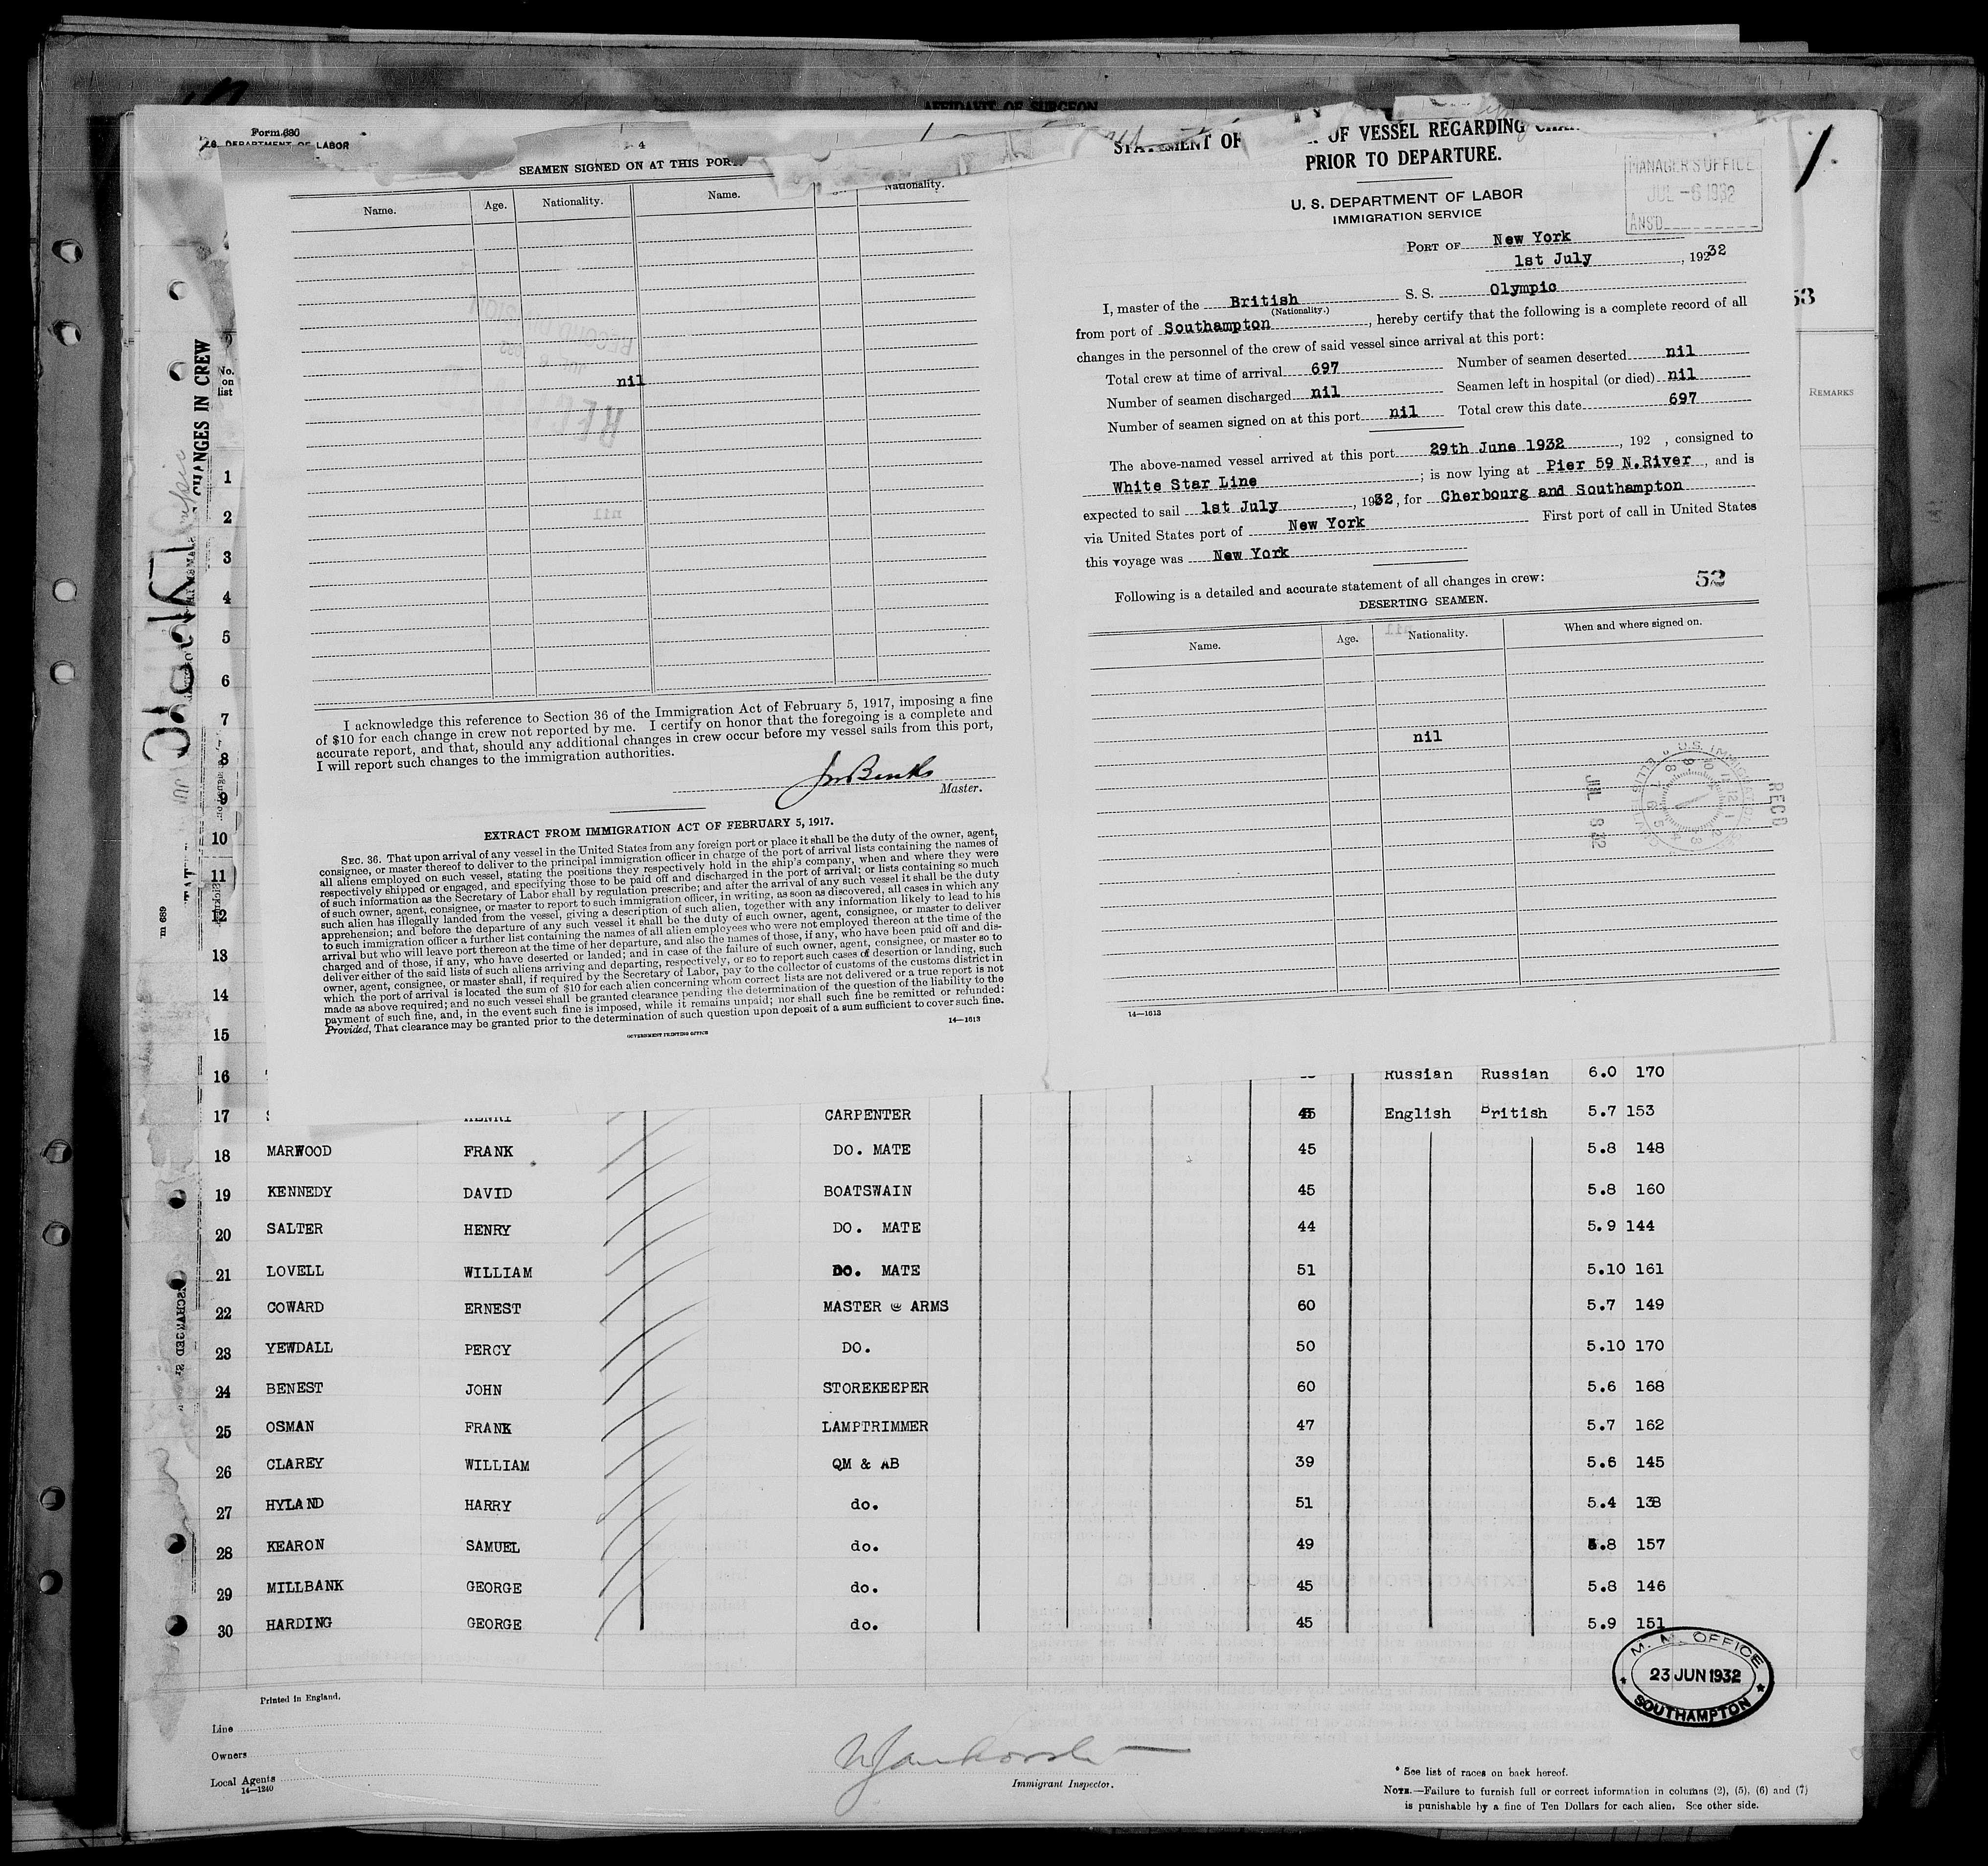 AFFIDAVIT OF SURGEON
Form 680
DEPARTMENT OF LABOR
4
SEAMEN SIGNED ON AT THIS PORT
Name. Age. Nationality. Name. Nationality.
nil
I acknowledge this reference to Section 36 of the Immigration Act of February 5, 1917, imposing a fine
of $10 for each change in crew not reported by me. I certify on honor that the foregoing is a complete and
accurate report, and that, should any additional changes in crew occur before my vessel sails from this port,
I will report such changes to the immigration authorities.
Master.
EXTRACT FROM IMMIGRATION ACT OF FEBRUARY 5, 1917.
SEC. 36. That upon arrival of any vessel in the United States from any foreign port or place it shall be the duty of the owner, agent,
consignee, or master thereof to deliver to the principal immigration officer in charge of the port of arrival lists containing the names of
all aliens employed on such vessel, stating the positions they respectively hold in the ship's company, when and where they were
respectively shipped or engaged, and specifying those to be paid off and discharged in the port of arrival; or lists containing so much
of such information as the Secretary of Labor shall by regulation prescribe; and after the arrival of any such vessel it shall be the duty
of such owner, agent, consignee, or master to report to such immigration officer, in writing, as soon as discovered, all cases in which any
such alien has illegally landed from the vessel, giving a description of such alien, together with any information likely to lead to his
apprehension; and before the departure of any such vessel it shall be the duty of such owner, agent, consignee, or master to deliver
to such immigration officer a further list containing the names of all alien employees who were not employed thereon at the time of the
arrival but who will leave port thereon at the time of her departure, and also the names of those, if any, who have been paid off and dis-
charged and of those, if any, who have deserted or landed; and in case of the failure of such owner, agent, consignee, or master so to
deliver either of the said lists of such aliens arriving and departing, respectively, or so to report such cases of desertion or landing, such
owner, agent, consignee, or master shall, if required by the Secretary of Labor, pay to the collector of customs of the customs district in
which the port of arrival is located the sum of $10 for each alien concerning whom correct lists are not delivered or a true report is not
made as above required; and no such vessel shall be granted clearance pending the determination of the question of the liability to the
payment of such fine, and, in the event such fine is imposed, while it remains unpaid; nor shall such fine be remitted or refunded:
Provided, That clearance may be granted prior to the determination of such question upon deposit of a sum sufficient to cover such fine.
GOVERNMENT PRINTING OFFICE 14—1613
STATEMENT OF OF VESSEL REGARDING
PRIOR TO DEPARTURE.
MANAGER'S OFFICE
JUL -6 1932
ANS'D
U. S. DEPARTMENT OF LABOR
IMMIGRATION SERVICE
PORT OF New York
1st July, 19232
I, master of the British S. S. Olympic
(Nationality.)
from port of Southampton, hereby certify that the following is a complete record of all
changes in the personnel of the crew of said vessel since arrival at this port:
Total crew at time of arrival 697 Number of seamen deserted nil
Number of seamen discharged nil Seamen left in hospital (or died) nil
Number of seamen signed on at this port nil Total crew this date 697
The above-named vessel arrived at this port 29th June 1932, 192 , consigned to
White Star Line; is now lying at Pier 59 N.River, and is
expected to sail 1st July, 1932, for Cherbourg and Southampton
via United States port of New York First port of call in United States
this voyage was New York
52
Following is a detailed and accurate statement of all changes in crew:
DESERTING SEAMEN.
Name. Age. Nationality. When and where signed on.
nil
REC'D
U.S. IMMIGRATION
JUL 8 32
14—1613
53
REMARKS
CHANGES IN CREW
No. on list
1
2
3
4
5
6
7
8
9
10
11
12
13
14
15
16 Russian Russian 6.0 170
17 HENRY CARPENTER 45 English British 5.7 153
18 MARWOOD FRANK DO. MATE 45 5.8 148
19 KENNEDY DAVID BOATSWAIN 45 5.8 160
20 SALTER HENRY DO. MATE 44 5.9 144
21 LOVELL WILLIAM DO. MATE 51 5.10 161
22 COWARD ERNEST MASTER @ ARMS 60 5.7 149
23 YEWDALL PERCY DO. 50 5.10 170
24 BENEST JOHN STOREKEEPER 60 5.6 168
25 OSMAN FRANK LAMPTRIMMER 47 5.7 162
26 CLAREY WILLIAM QM & AB 39 5.6 145
27 HYLAND HARRY do. 51 5.4 138
28 KEARON SAMUEL do. 49 5.8 157
29 MILLBANK GEORGE do. 45 5.8 146
30 HARDING GEORGE do. 45 5.9 151
M. M. OFFICE
23 JUN 1932
SOUTHAMPTON
Printed in England.
Line
Owners
Local Agents
14—1240
Immigrant Inspector.
* See list of races on back hereof.
NOTE.—Failure to furnish full or correct information in columns (2), (5), (6) and (7)
is punishable by a fine of Ten Dollars for each alien. See other side.
m 689